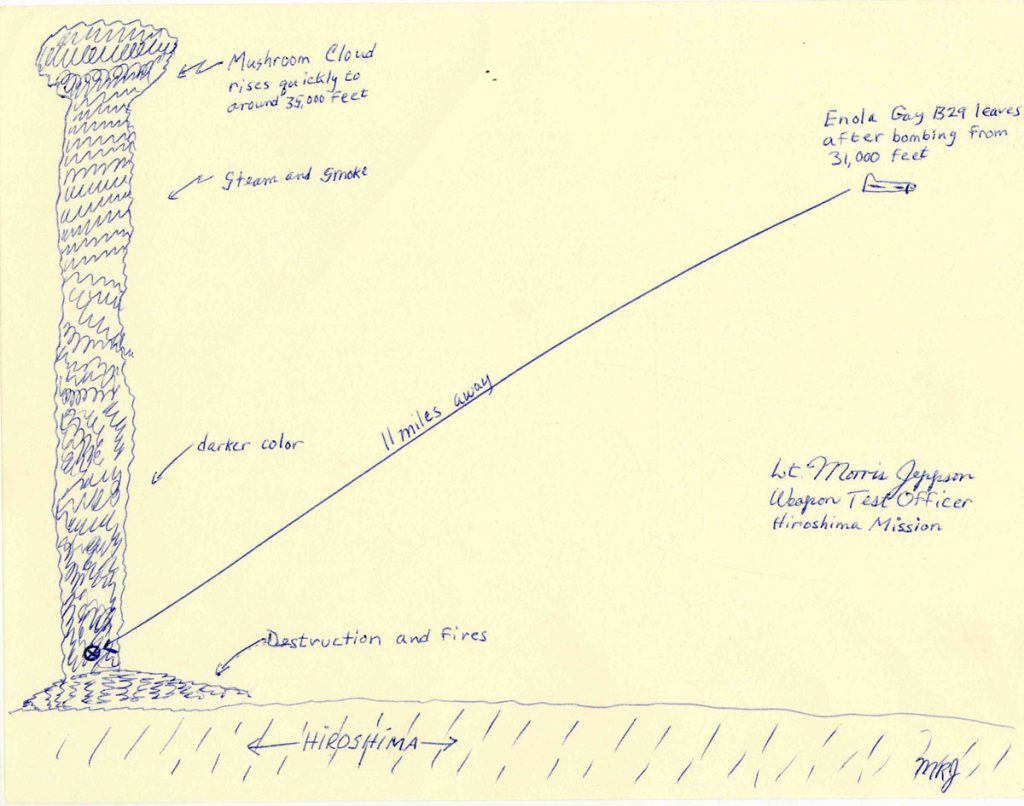 Mushroom Cloud
rises quickly to
around 35,000 Feet
Enola Gay B29 leaves
after bombing from
31,000 feet
Steam and Smoke
11 miles away
darker color
Lt. Morris Jeppson
Weapon Test Officer
Hiroshima Mission
Destruction and fires
HIROSHIMA
MRJ